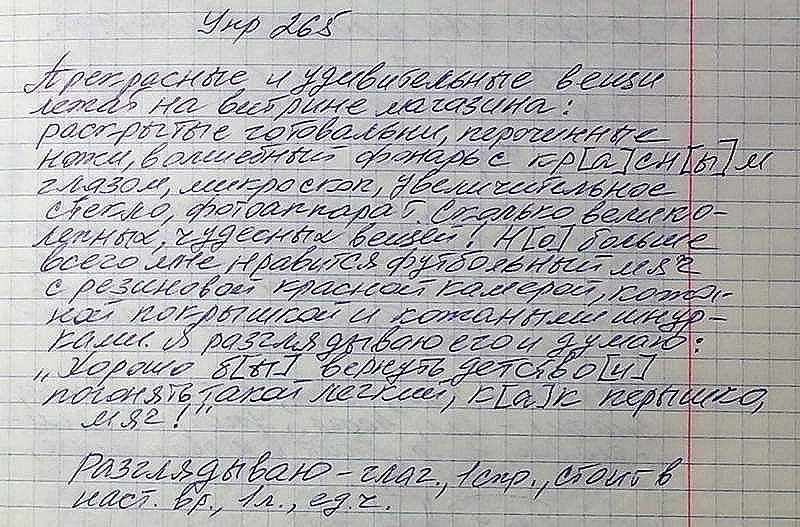 Упр 265
Прекрасные и удивительные вещи
лежат на витрине магазина:
раскрытые готовальни, перочинные
ножи, волшебный фонарь с кр[а]сн[ы]м
глазом, микроскоп, увеличительное
стекло, фотоаппарат. Сколько велико-
лепных, чудесных вещей! Н[о] больше
всего мне нравится футбольный мяч
с резиновой красной камерой, кожа-
ной покрышкой и кожаными шнур-
ками. Я разглядываю его и думаю:
„Хорошо б[ы] вернуть детство [и]
погонять такой легкий, к[а]к перышко,
мяч!"
Разглядываю – глаг., 1 спр., стоит в
наст. вр., 1 л., ед. ч.